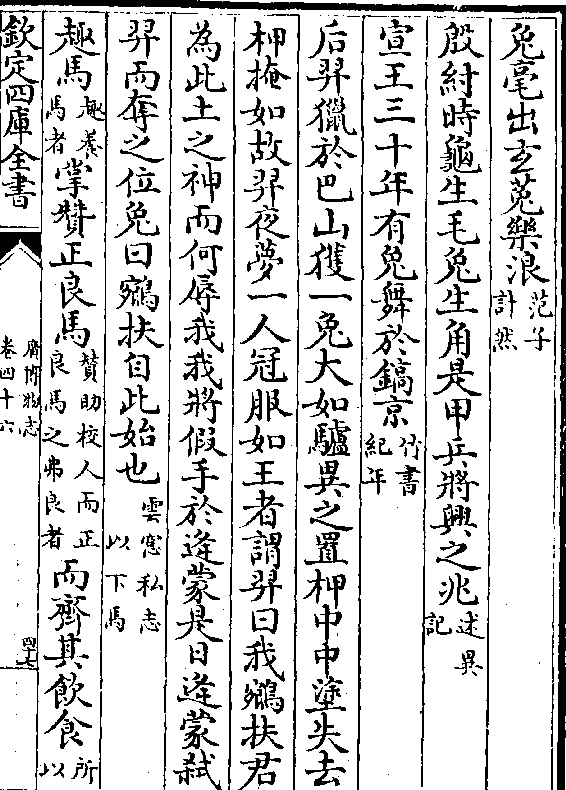 兔毫出玄菟樂浪范子計然
殷紂時龜生毛兔生角是甲兵將興之兆述異記
宣王三十年有兔舞於鎬京竹書紀年
后羿獵於巴山獲一兔大如驢異之置柙中中塗失去
柙掩如故羿夜夢一人冠服如王者謂羿曰我鵷扶君
為此土之神而何辱我我將假手於逄蒙是日逄蒙弑
羿而奪之位兔曰鵷扶自此始也雲窓私志以下馬
趣馬趣養馬者掌贊正良馬贊助校人而正良馬之弗良者而齊其飲食所以
欽定四庫全書
廣博物志
卷四十六
四十七